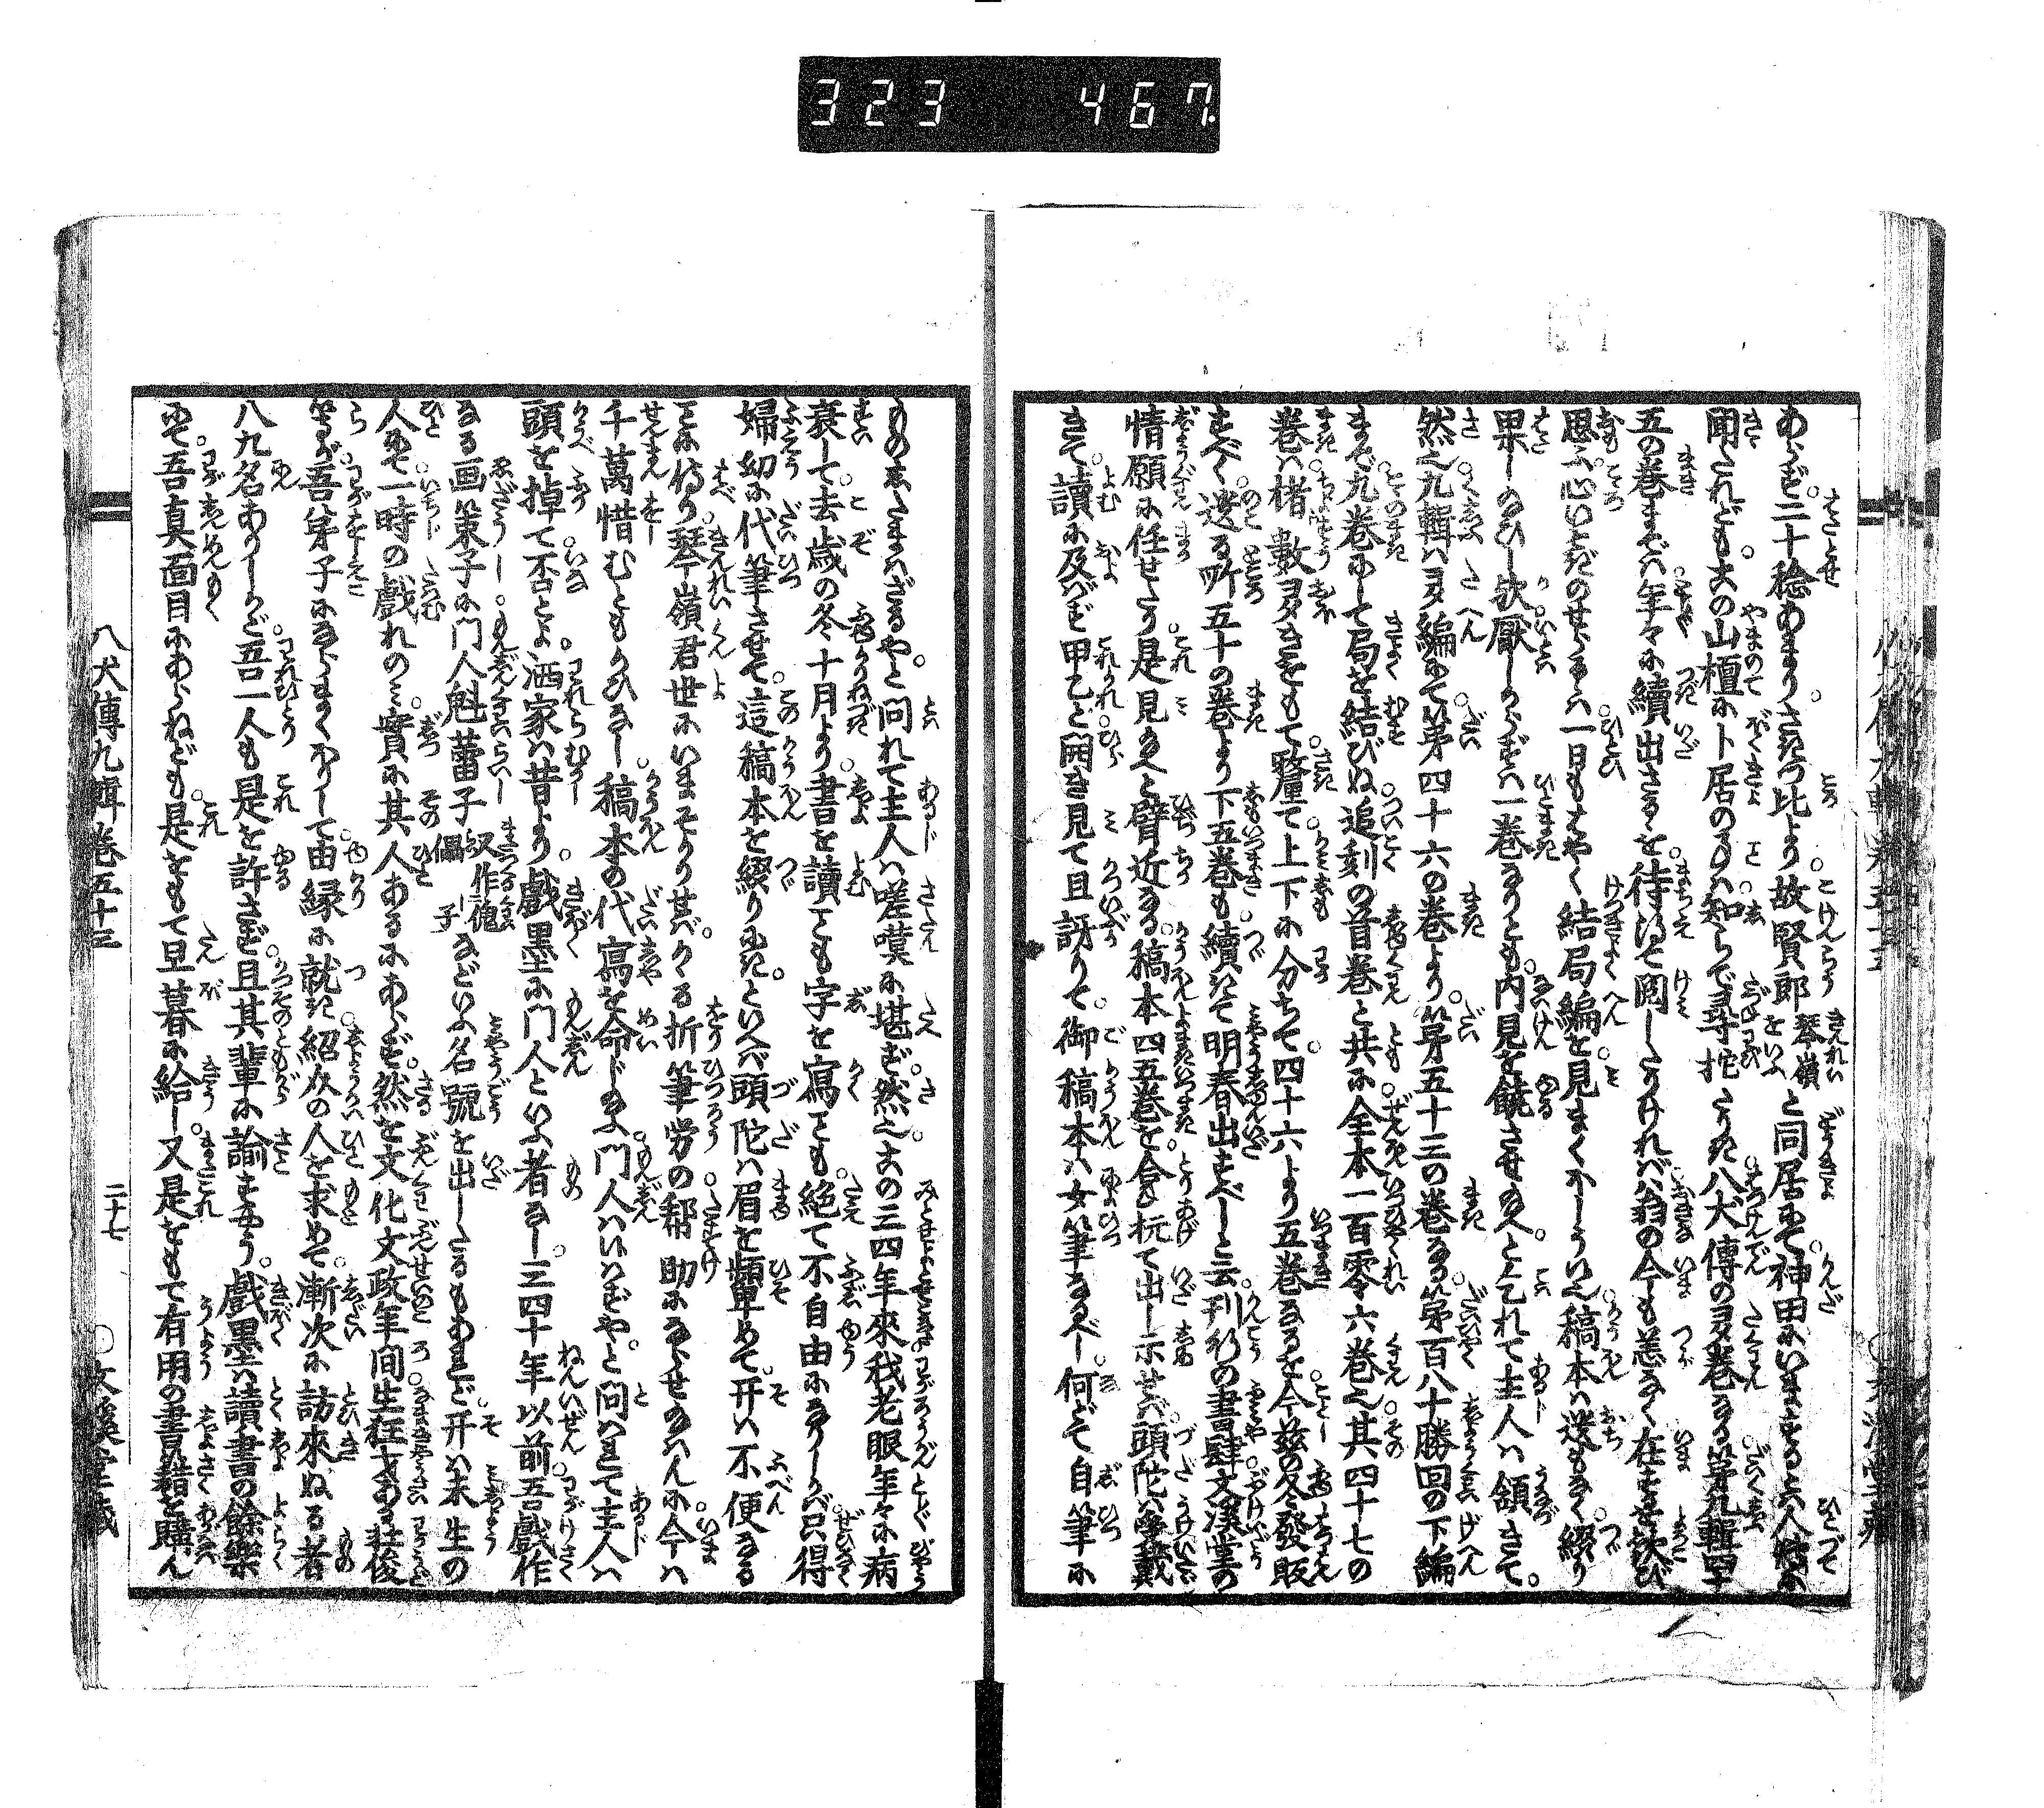 323 467
あらず二十稔あまりさきつ比より故賢郎琴嶺をいふと同居にて神田にいませるとは人伝に
聞たれども大の山檀に卜居のよしは知らで尋ね侘たりき八犬傳の多巻なる第九輯四十
五の巻までは年々に續出さるるを待得て閲したりければ翁の今も恙なく在するを歓び
思ふ心いとどのせらるるは一日もはやく結局編を見まくほしういと稿本は遠もなく綴り
果しのひし歟厭しからずは一巻なりとも内見を饒させ給へと乞れて主人は頷きて
然也九輯は多編にて第四十六の巻より第五十三の巻なる第百八十勝回の下編
まで九巻にして局を結びぬ追刻の首巻と共に全本一百零六巻也其四十七の
巻は楮數多きをもて釐て上下に分ちて四十六より五巻なるを今茲の冬發販
すべく遺る所五十の巻より下五巻も續きて明春出すべしと云刊行の書肆文溪堂の
情願に任せたり是見給へと臂近なる稿本四五巻を合し抗て出し示せば頭陀は受戴
きて讀に及ばず甲乙と開き見て且訝りて御稿本は女筆なるべし何どて自筆に
ものしたまはざるやと問れて主人は嗟嘆に堪ず然也大の三四年來我老眼年々に病
衰して去歳の冬十月より書を讀ことも字を寫ことも絶て不自由になりしかば只得
婦幼に代筆させて這稿本を綴りにきといへば頭陀は眉を顰めて开は不便なる
ことに侍り琴嶺君世にいまそかりせばかかる折筆勞の幇助にならせ給はんに今は
千萬惜むともかひなし稿本の代寫を命じ給ふ門人はいはずやと問はれて主人は
頭を掉て否とよ洒家は昔より戯墨に門人といふ者なし三四十年以前吾戯作
なる画策子に門人魁蕾子又作傀儡子などいふ名號を出したるもあれど开は未生の
人にて一時の戯れのみ實に其人あるにあらず然を文化文政年間生狂才ある壮俊
等が吾弟子にならまくほりして由縁に就き紹介の人を求めて漸次に訪來ぬる者
八九名ありしかど吾一人も是を許さず且其輩に諭すやう戯墨は讀書の餘樂
にて吾真面目にあらねども是をもて旦暮に給し又是をもて有用の書籍を購ん
八犬傳九輯巻五十三
二十七
文溪堂藏